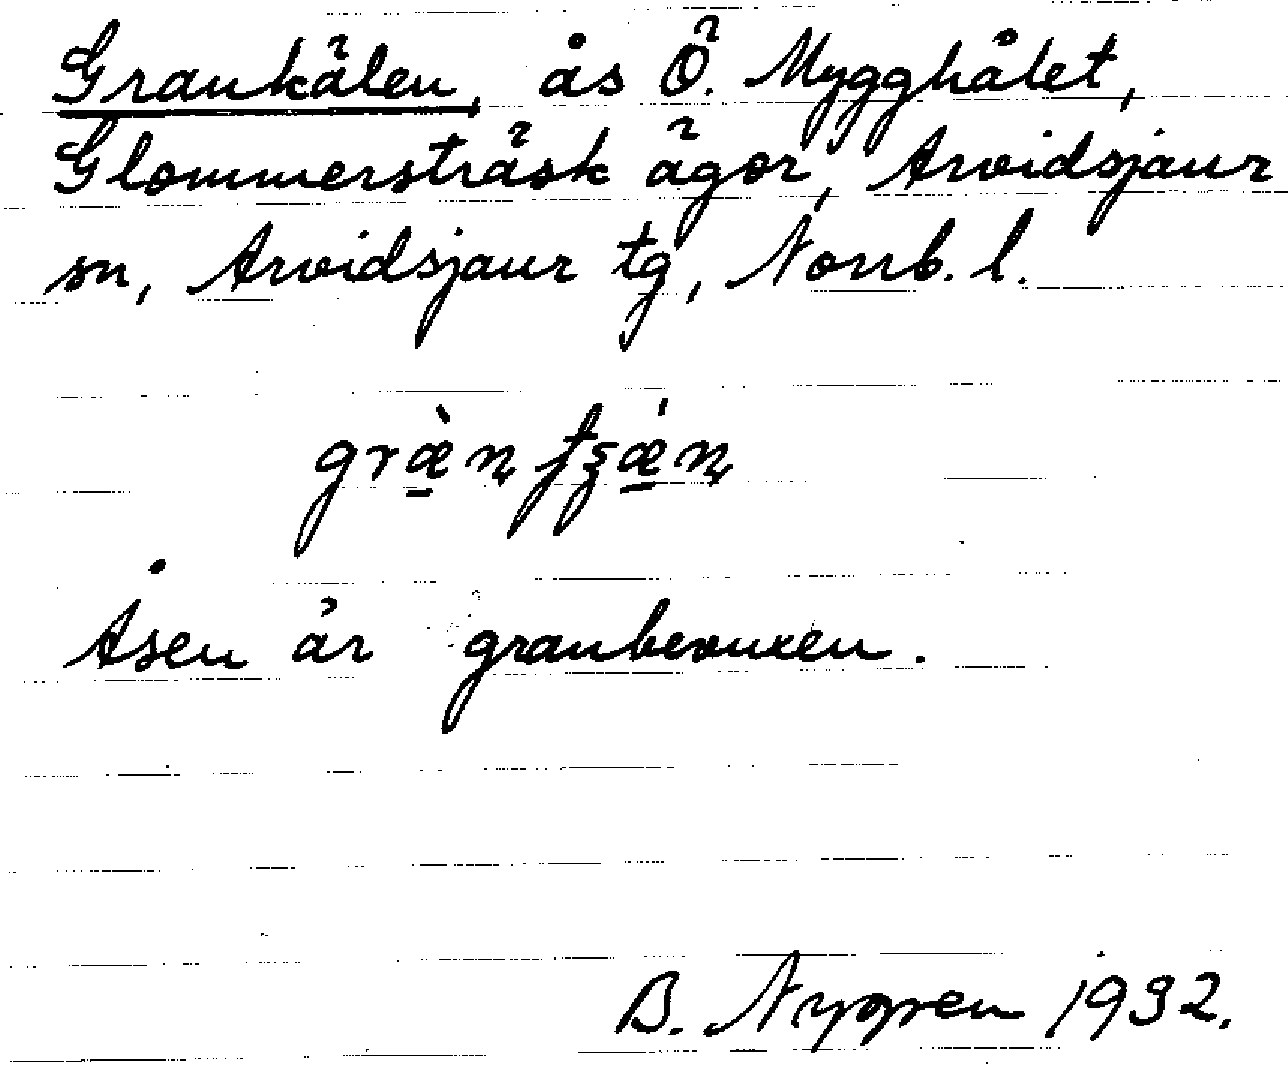 Grankälen, ås Ö. Mygghålet,
Glommersträsk ägor, Arvidsjaur
sn, Arvidsjaur tg, Norrb. l.
græ̀n fʒǽn
Åsen är granbevuxen.
B. Nygren 1932.